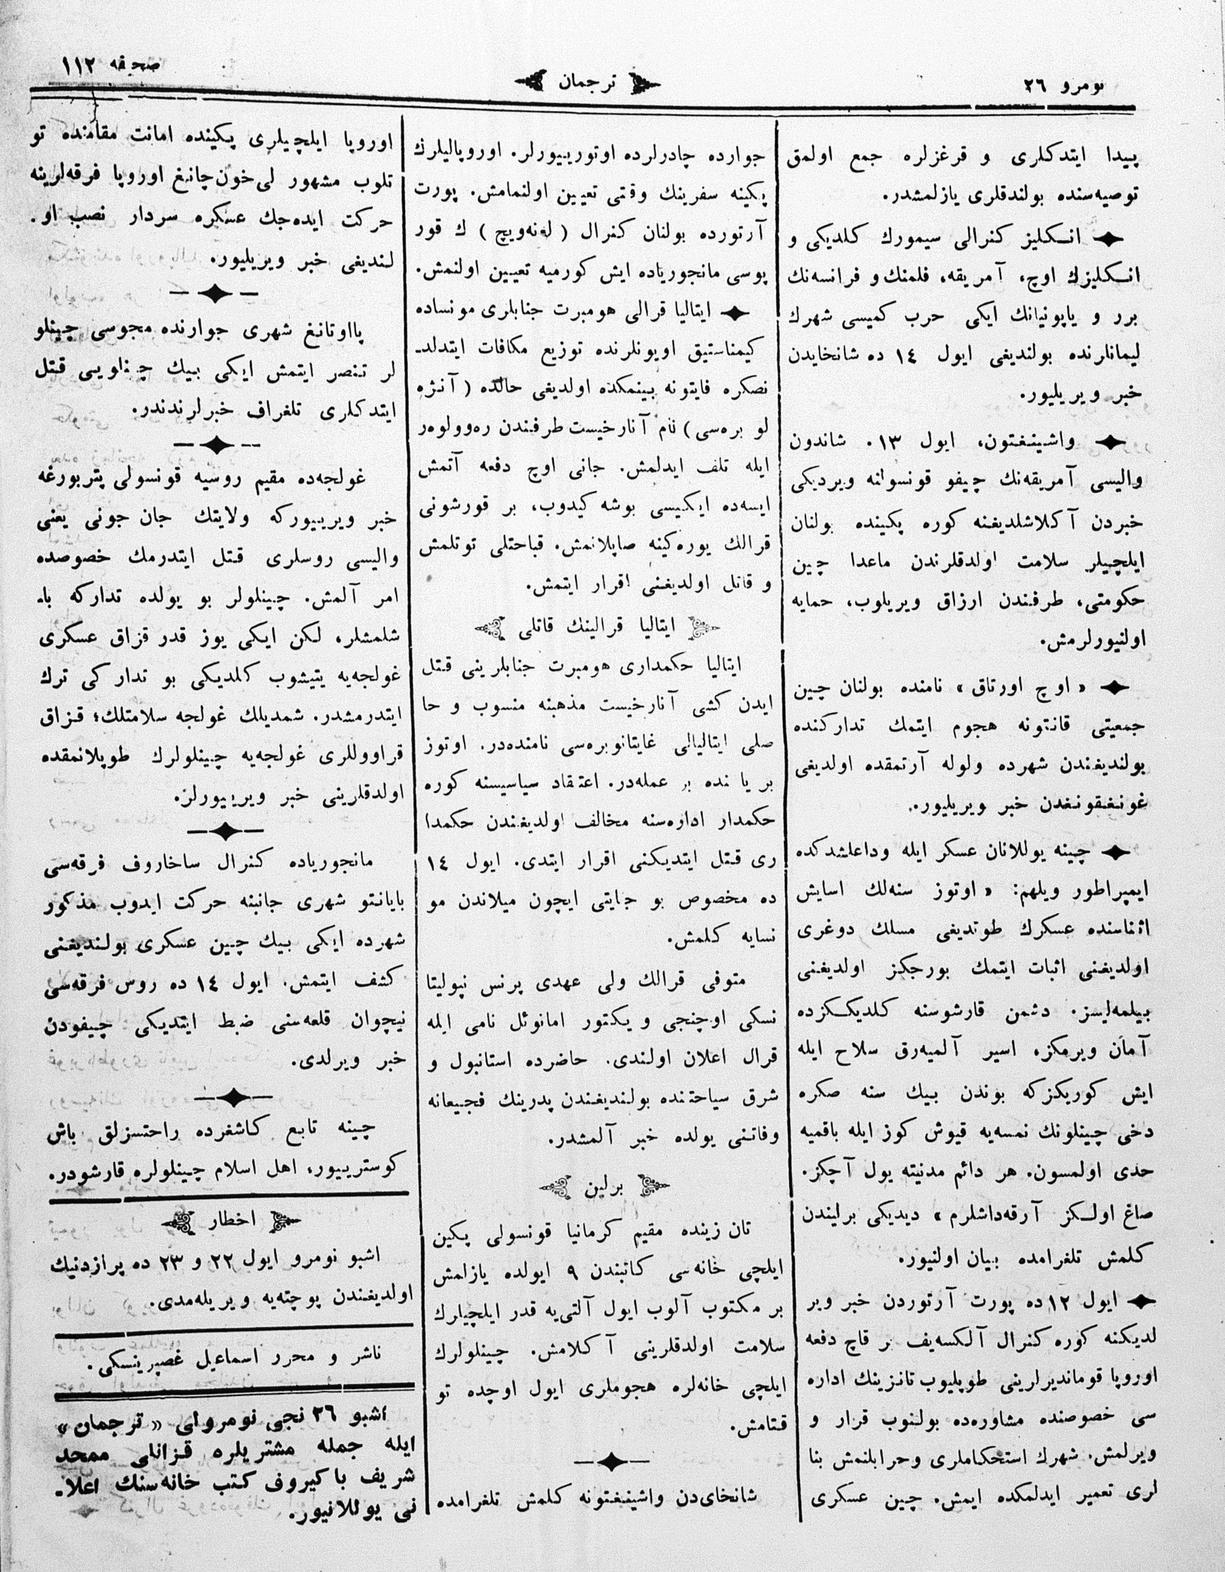 نومرو ٢٦
ترجمان
صحیفه ١١٢
پیدا ایتدكلری و قرغزلره جمع اولمق
توصیه‌سنده بولندقلری یازلمشدر.
انـكلیز كنرالی سیمورك كلدیكی و
انـكلیزك اوچ، آمریقه، فلمنك و فرانسه‌نك
برر و یاپونیانك ایكی حرب كمیسی شهرك
لیمانلرنده بولندیغی ایول ١٤ ده شانخایدن
خبر ویریلیور.
واشینغتون، ایول ١٣. شاندون
والیسی آمریقه‌نك چیفو قونسولنه ویردیكی
خبردن آكلاشلدیغنه كوره پكینده بولنان
ایلچیلر سلامت اولدقلرندن ماعدا چین
حكومتی، طرفندن ارزاق ویریلوب، حمایه
اولنیورلرمش.
« اوچ اورتاق » نامنده بولنان چین
جمعیتی قانتونه هجوم ایتمك تداركنده
بولندیغندن شهرده ولوله آرتمقده اولدیغی
غونغقونغدن خبر ویریلیور.
چینه یوللانان عسكر ایله وداعلشدكده
ایمپراطور ویلهم: « اوتوز سنه‌لك اسایش
اثناسنده عسكرك طوتدیغی مسلك دوغری
اولدیغنی اثبات ایتمك بورجكز اولدیغنی
بیلمه‌لیسز. دشمن قارشوسنه كلدیكـكزده
آمان ویرمكز، اسیر آلمیه‌رق سلاح ایله
ایش كوریكزكه بوندن بیك سنه صكره
دخی چینلونك نمسه‌یه قیوش كوز ایله باقمیه
حدی اولمسون. هر دائم مدنیته یول آچكز.
صاغ اولـكز آرقه‌داشلرم » دیدیكی برلیندن
كلمش تلغرامده بیان اولنیور.
ایول ١٢ده پورت آرتوردن خبر ویر
لدیكنه كوره كنرال آلكسه‌یف بر قاچ دفعه
اوروپا قوماندیرلرینی طوپلیوب تانزینك اداره
سی خصوصنده مشاوره‌ده بولنوب قرار و
ویرلمش. شهرك استحكاملری و خرابلنمش بنا
لری تعمیر ایدلمكده ایمش. چین عسكری
جوارده چادرلرده اوتورییورلر. اوروپالیلرك
پكینه سفرینك وقتی تعیین اولنمامش. پورت
آرتورده بولنان كنرال ( له‌نه‌ویچ ) ك قور
پوسی مانجوریاده ایش كورمیه تعیین اولنمش.
ایتالیا قرالی هومبرت جنابلری مونساده
كیمناستیق اویونلرنده توزیع مكافات ایتدلد‍ـ
نصكره فایتونه بینمكده اولدیغی حالده ( آنژه
لو بره‌سی) نام آنارخیست طرفندن ره‌وولوه‌ر
ایله تلف ایدلمش. جانی اوچ دفعه آتمش
ایسه‌ده ایكیسی بوشه كیدوب، بر قورشونی
قرالك یوره‌كینه صاپلانمش. قباحتلی توتلمش
و قاتل اولدیغنی اقرار ایتمش.
ایتالیا قرالینك قاتلی
ایتالیا حكمداری هومبرت جنابلرینی قتل
ایدن كشی آنارخیست مذهبنه منسوب و حا
صلی ایتالیالی غایتانوبره‌سی نامنده‌در. اوتوز
بر یاشنده بر عمله‌در. اعتقاد سیاسیسنه كوره
حكمدار اداره‌سنه مخالف اولدیغندن حكمدا
ری قتل ایتدیكنی اقرار ایتدی. ایول ١٤
ده مخصوص بو جنایتی ایچون میلاندن مو
نسایه كلمش.
متوفی قرالك ولی عهدی پرنس نپولیتا
نسكی اوجنجی ویكتور امانوئل نامی ایله
قرال اعلان اولندی. حاضرده استانبول و
شرق سیاحتنده بولندیغندن پدرینك فجیعانه
وفاتنی یولده خبر آلمشدر.
برلین
تان زینده مقیم كرمانیا قونسولی پكین
ایلچی خانه‌سی كاتبندن ٩ ایولده یازلمش
بر مكتوب آلوب ایول آلتی‌یه قدر ایلچیلرك
سلامت اولدقلرینی آكلامش. چینلولرك
ایلچی خانه‌لره هجوملری ایول اوچده تو
قتامش.
شانخای‌دن واشینغتونه كلمش تلغرامده
اوروپا ایلچیلری پكینده امانت مقامنده تو
تلوب مشهور لی‌خون‌چانغ اوروپا فرقه‌لرینه
حركت ایده‌جك عسكره سردار نصب او.
لندیغی خبر ویریلیور.
پااوتانغ شهری جوارنده مجوسی چینلو
لر تنصر ایتمش ایكی بیك چتاویی قتل
ایتدكلری تلغراف خبرلرندندر.
غولجه‌ده مقیم روسیه قونسولی پتربورغه
خبر ویرییوركه ولایتك جان جونی یعنی
والیسی روسلری قتل ایتدرمك خصوصده
امر آلمش. چینلولر بو یولده تداركه باـ
شلمشلر، لكن ایكی یوز قدر قزاق عسكری
غولجه‌یه یتیشوب كلدیكی بو تداركی ترك
ایتدرمشدر. شمدیلك غولجه سلامتلك؛ قزاق
قراووللری غولجه‌یه چینلولرك طوپلانمقده
اولدقلرینی خبر ویرییورلر.
مانجوریاده كنرال ساخاروف فرقه‌سی
بایانتو شهری جانبنه حركت ایدوب مذكور
شهرده ایكی بیك چین عسكری بولندیغنی
كشف ایتمش. ایول ١٤ ده روس فرقه‌سی
نیچوان قلعه‌سنی ضبط ایتدیكی چیفودن
خبر ویرلدی.
چینه تابع كاشغرده راحتسزلق باش
كوسترییور، اهل اسلام چینلولره قارشودر.
اخطار
اشبو نومرو ایول ٢٢ و ٢٣ ده پرازدنیك
اولدیغندن پوچته‌یه ویریله‌مدی.
ناشر و محرر اسماعیل غصپرینسكی.
اشبو ٢٦ نجی نومرولی « ترجمان »
ایله جمله مشتریلره قزانلی ممحد
شریف باكیروف كتب خانه‌سنك اعلاـ
نی یوللانیور.